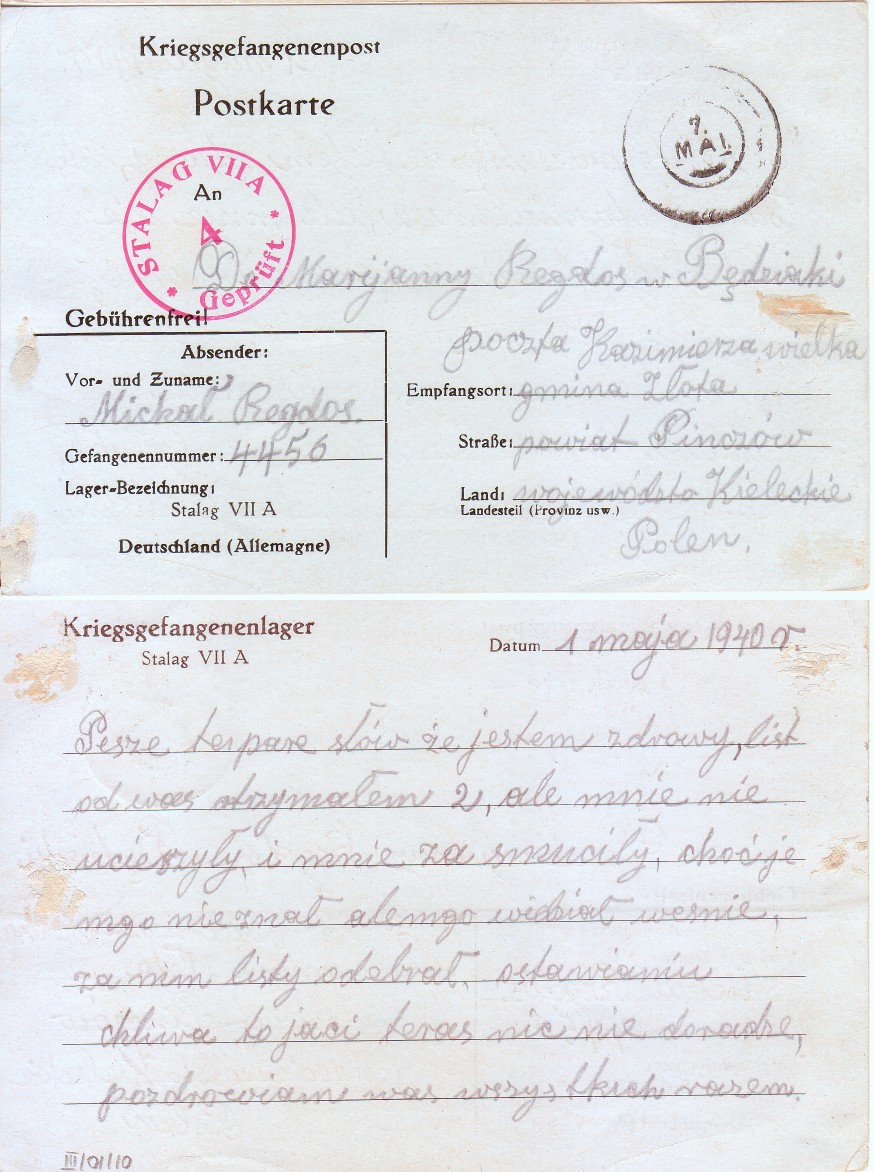 Kriegsgefangenenpost
Postkarte
7.
MAI
STALAG VII A
4
Geprüft
An
Do Marijanny Regdos w Będziaki
Gebührenfrei!
poczta Kazimierza wielka
Absender:
Vor- und Zuname:
Michał Regdos.
Empfangsort: gmina Złota
Gefangenennummer: 4456
Straße: powiat Pinczów
Lager-Bezeichnung:
Stalag VII A
Land: wojewódsto Kieleckie
Landesteil (Provinz usw.)
Deutschland (Allemagne)
Polen.
Kriegsgefangenenlager
Stalag VII A
Datum 1 maja 1940 r.
Pesze te pare słów że jestem zdrowy, list
od was otrzymałem 2, ale mnie nie
ucieszyły i mnie za smuciły, choć je
mgo nie znał alemgo widział wesnie,
za nim listy odebrał. ostawianiu
chliwa to jaci teras nic nie doradze,
pozdrowiam was wszystkich razem.
III/01/10